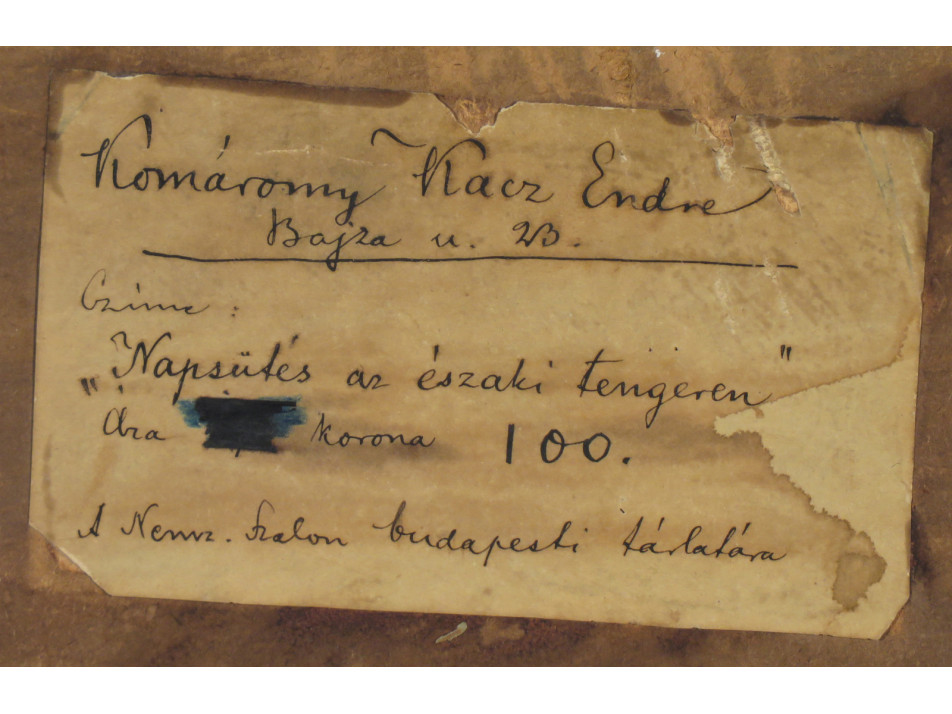 Komáromy Kacz Endre
Bajza u. 23.
Czime :
"Napsütés az északi tengeren"
Ára korona 100.
A Nemz. Szalon budapesti tárlatára